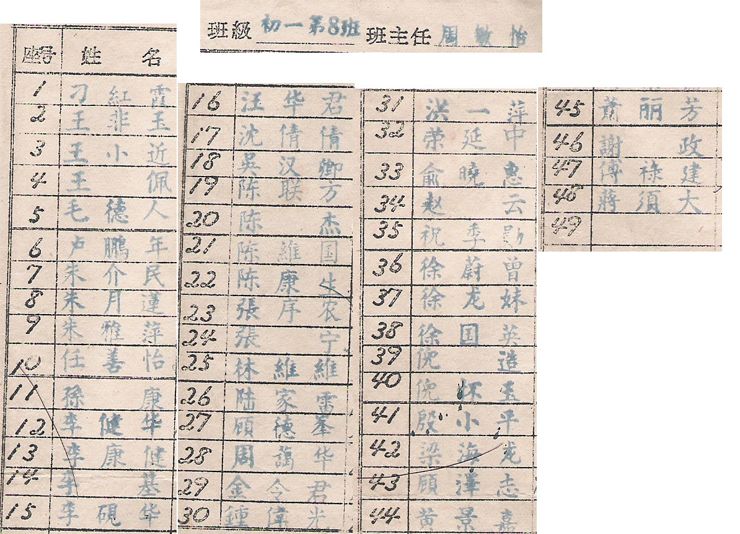 班級 初一第8班 班主任 周敏怡
座号 姓 名
1 刁紅霞
2 王非玉
3 王小近
4 王佩
5 毛德人
6 卢鵬年
7 朱介民
8 朱月蓮
9 朱雅萍
10 任善怡
11 孫康
12 李健华
13 李康健
14 李基
15 李硯华
16 汪华君
17 沈倩倩
18 吳汉卿
19 陈联方
20 陈杰
21 陈維国
22 陈康生
23 張序农
24 張宁
25 林維維
26 陆家雷
27 顾德峯
28 周蔼华
29 金令君
30 鍾偉光
31 洪一萍
32 荣延中
33 俞曉惠
34 赵云
35 祝季勛
36 徐蔚曾
37 徐龙妹
38 徐国英
39 倪造
40 倪怀玉
41 殷小平
42 梁海龙
43 顾澤志
44 黄景嘉
45 萧丽芳
46 謝政
47 傅祿建
48 蔣須大
49